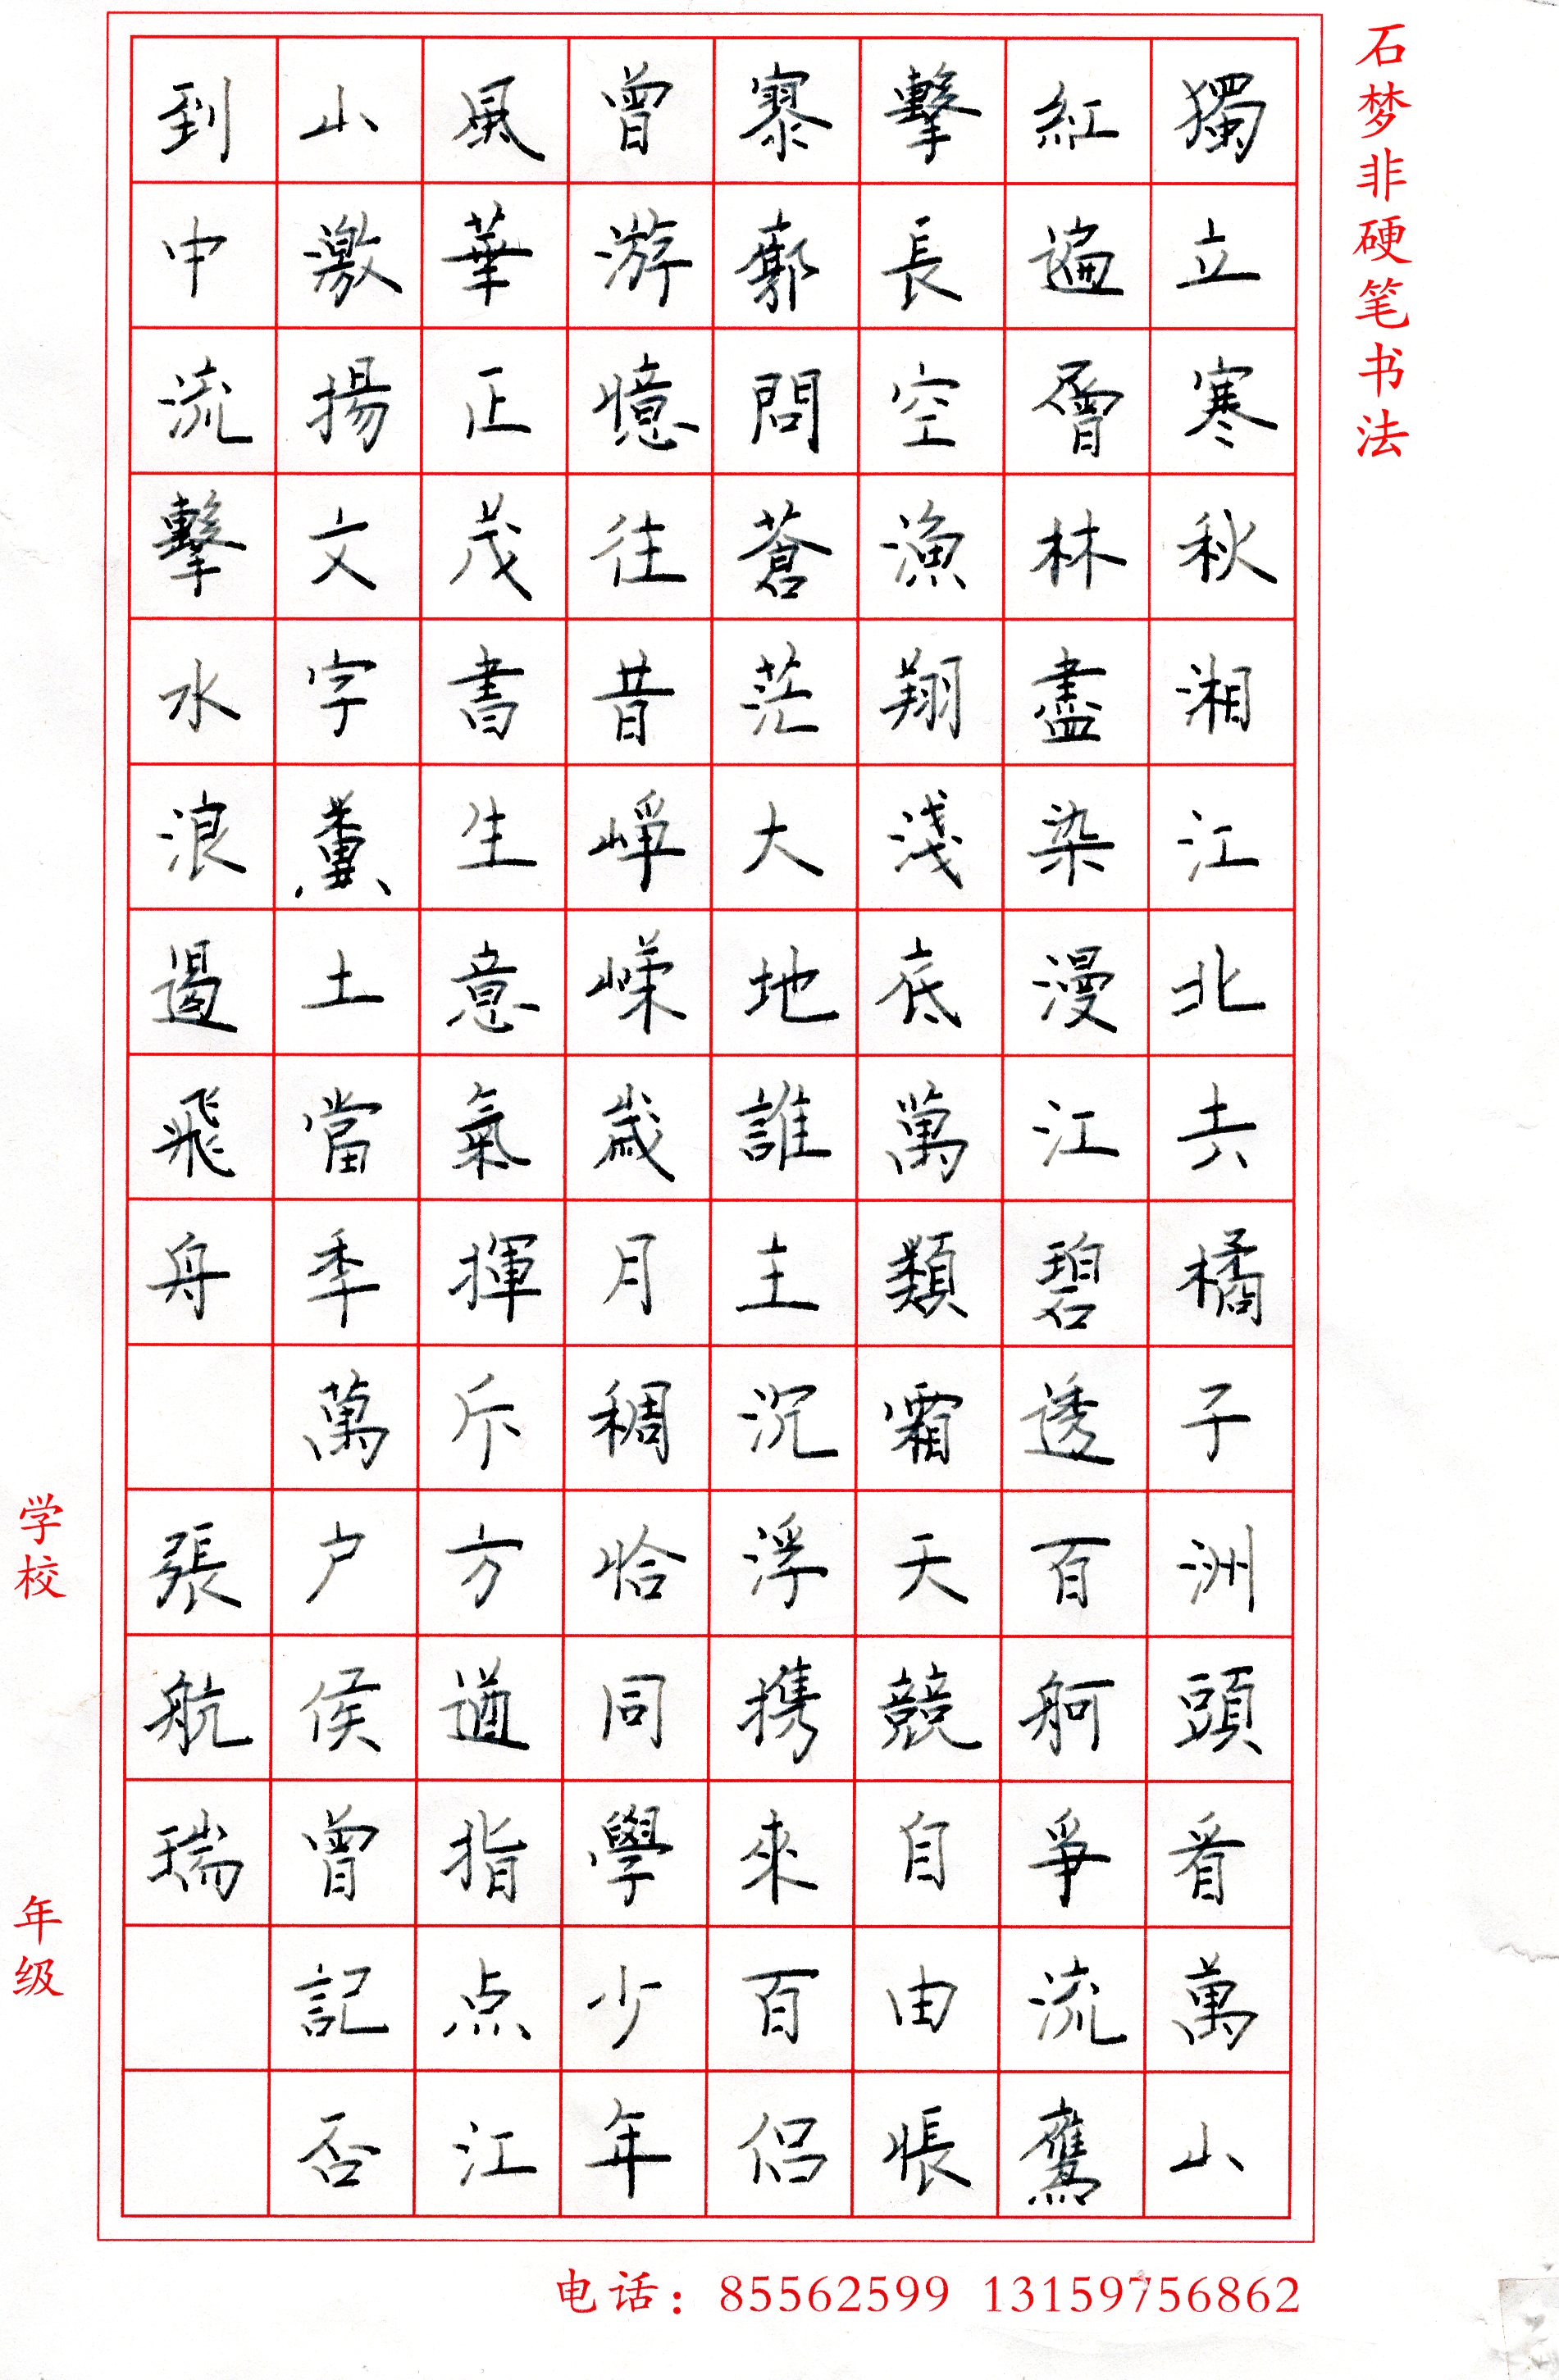 石梦非硬笔书法
獨立寒秋湘江北去橘子洲頭看萬山
紅遍層林盡染漫江碧透百舸爭流鷹
擊長空漁翔淺底萬類霜天競自由悵
寥廓問蒼茫大地誰主沉浮携來百侶
曾游憶往昔崢嶸歲月稠恰同學少年
風華正茂書生意氣揮斥方遒指点江
山激揚文字糞土當年萬户侯曾記否
到中流擊水浪遏飛舟 張航瑞
学校 年级
电话：85562599 13159756862